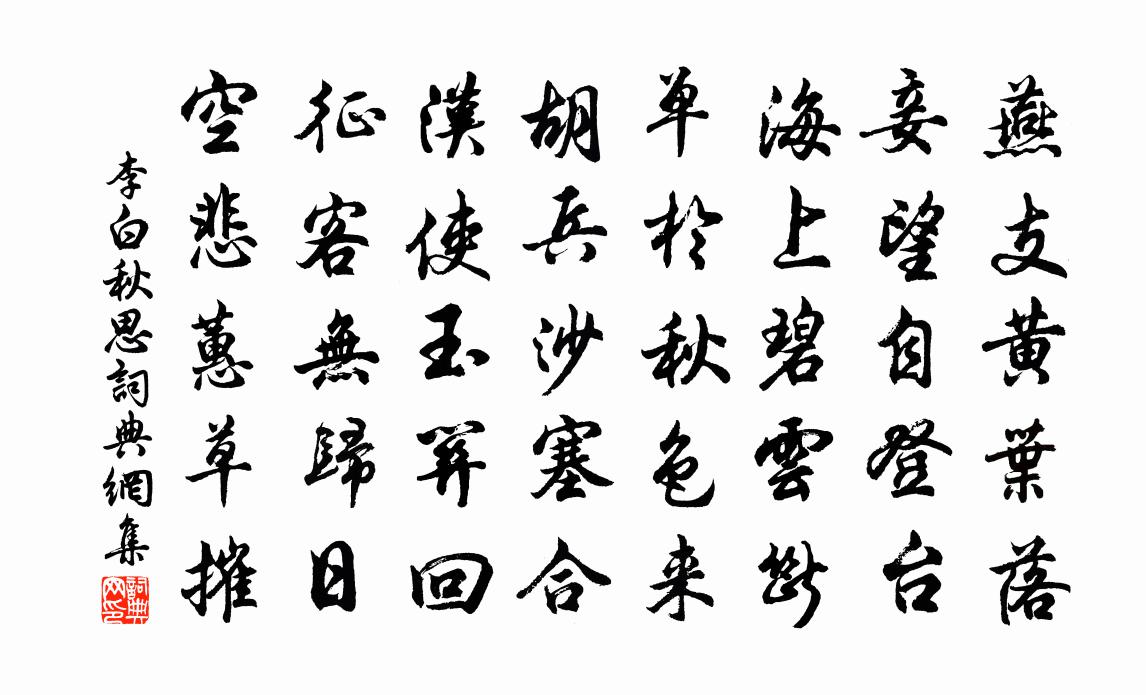 燕支黄葉落
妾望自登台
海上碧雲斷
单於秋色来
胡兵沙塞合
漢使玉関回
征客無歸日
空悲蕙草摧
李白秋思詞典網集
詞典网印